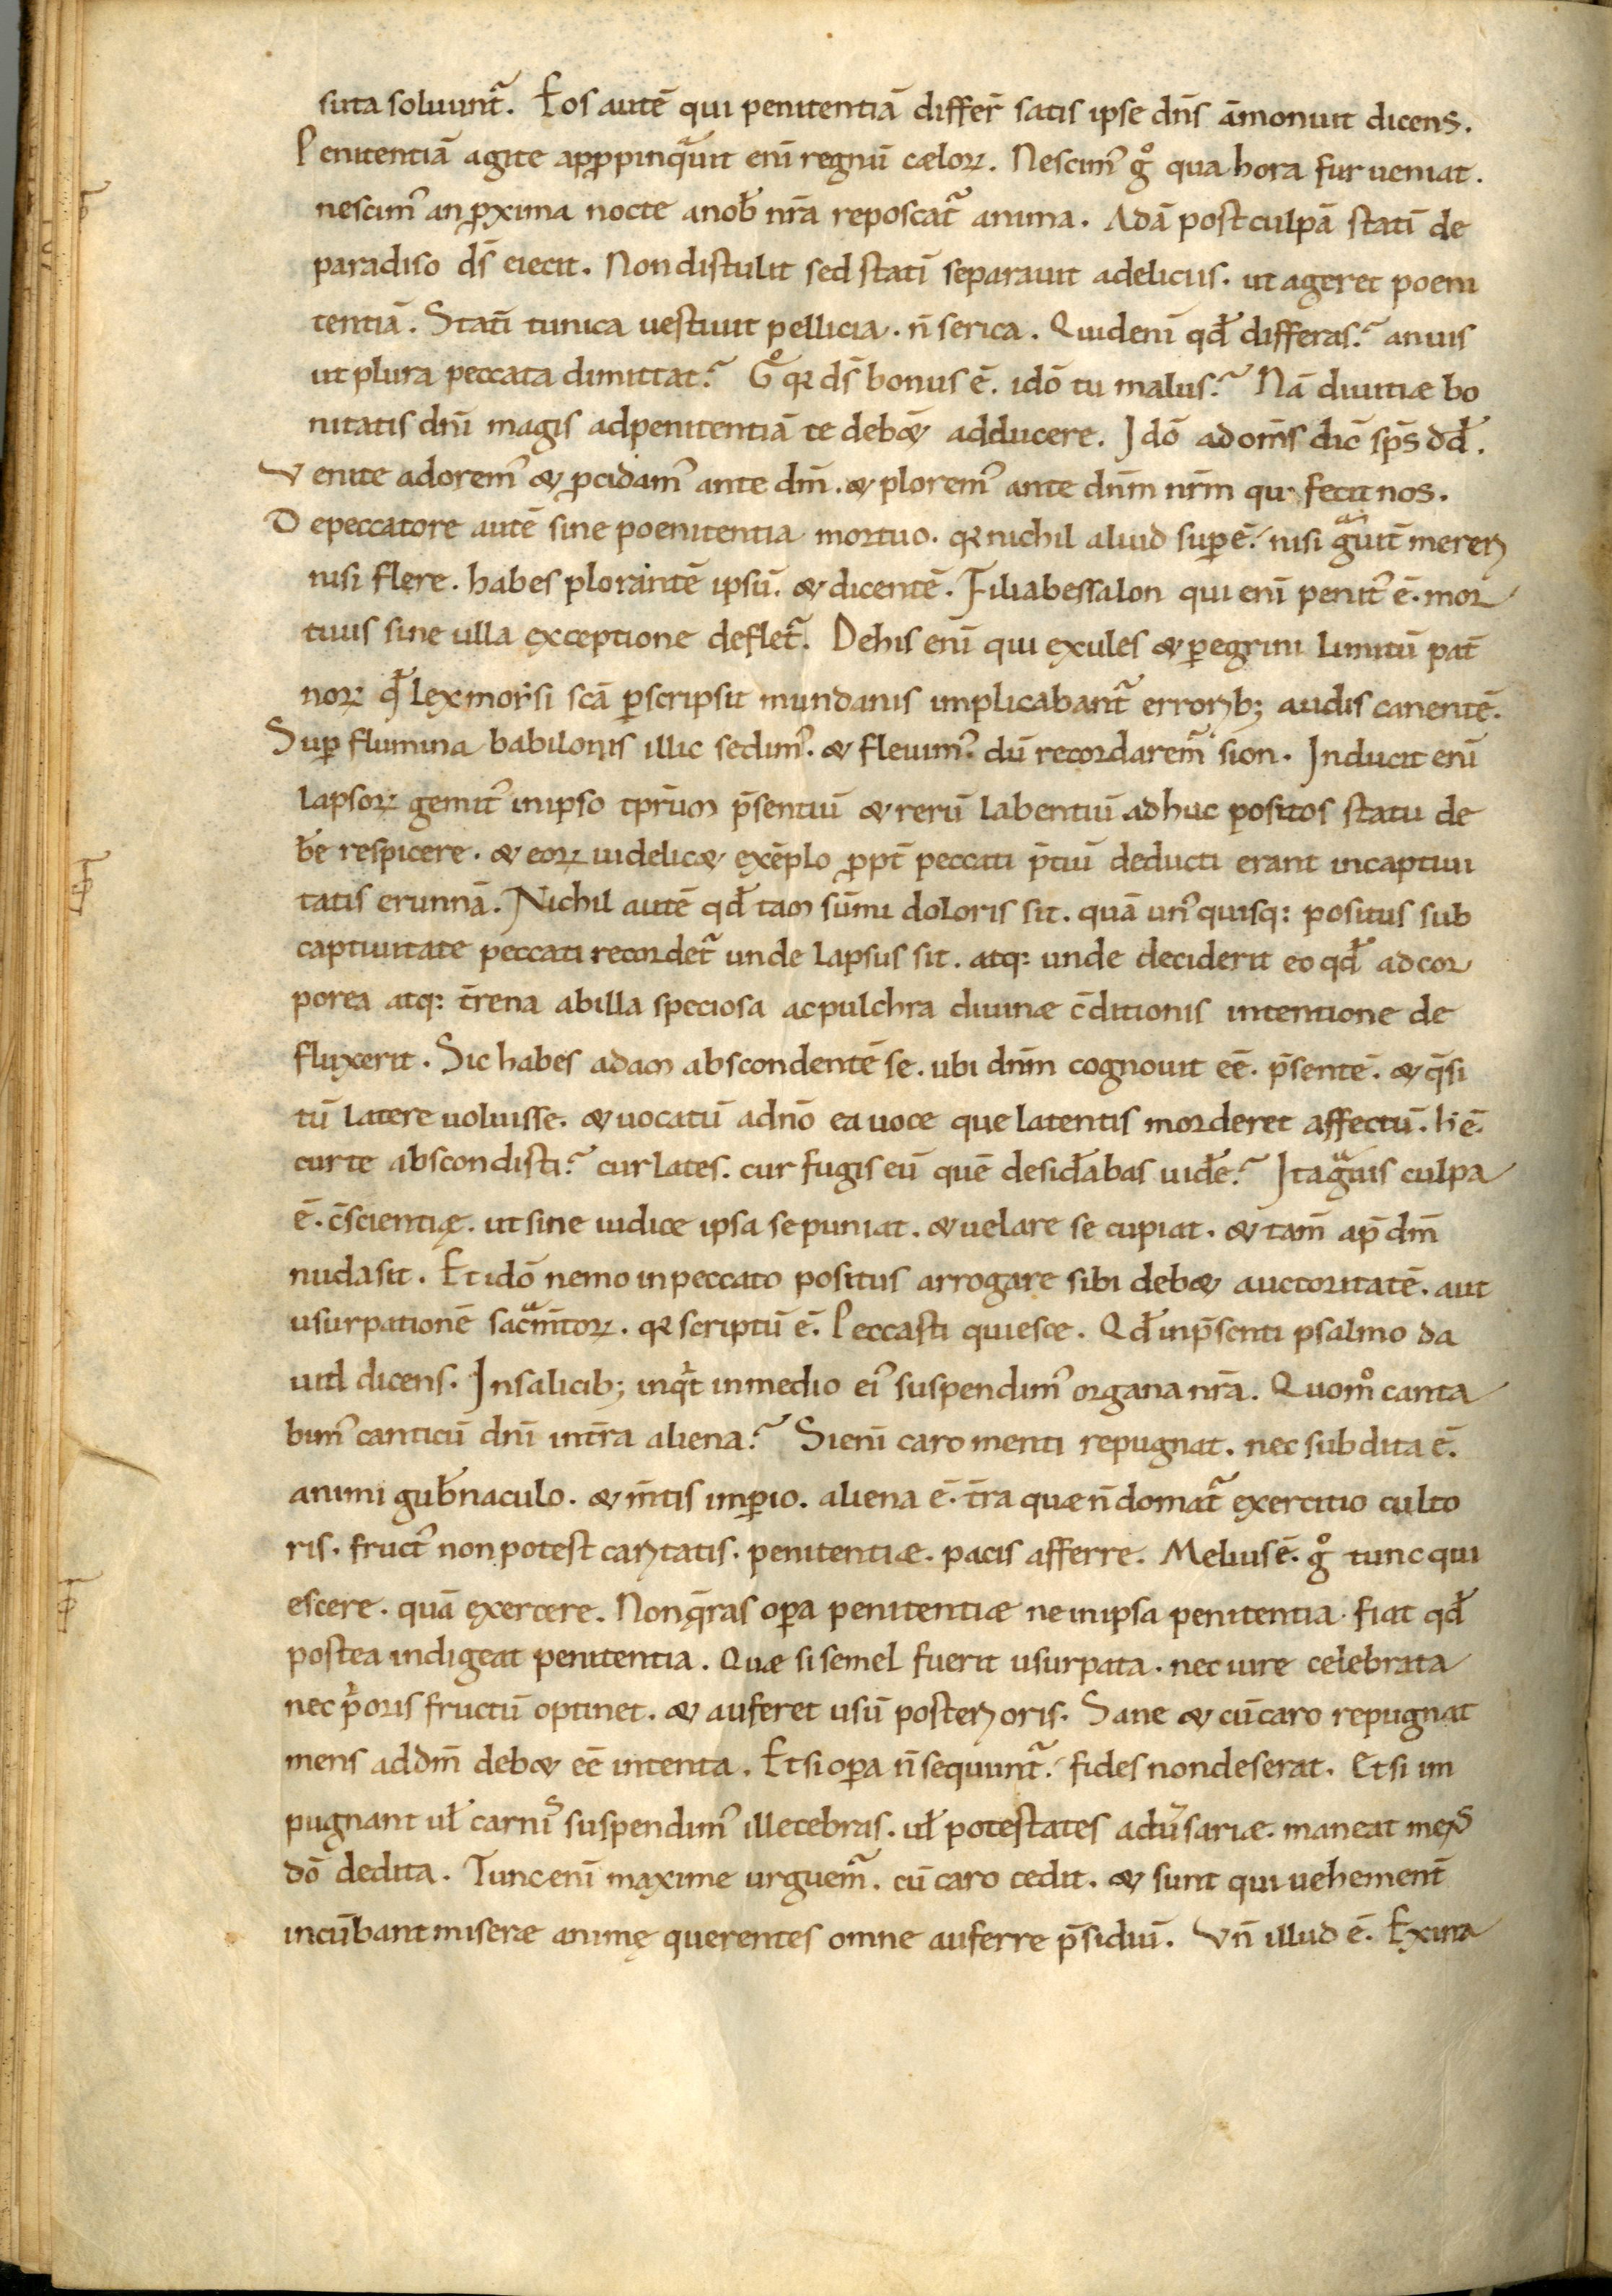 suta soluunt᷑. Eos autē qui penitentiā differ̄ satis ipse dn̄s āmonuit dicens.
Penitentiā agite appropinqͣuit enī regnū cæloꝝ. Nescimꝰ gͦ qua hora fur ueniat.
nescimꝰ an ꝓxima nocte anob̄ nr̄a reposcat᷑ anima. Adā post culpā statī de
paradiso ds̄ eiecit. Non distulit sed statī separauit adeliciis. ut ageret poeni
tentiā. Statī tunica uestiuit pellicia. n̄ serica. Quidenī qđ differas? anuis
ut plura peccata dimittat? Gͦ qꝛ ds̄ bonus ē. idō tu malus? Nā diuitiæ bo
nitatis dn̄i magis adpenitentiā te deb& adducere. Idō ad om̄s dic̄ sp̄s dđ.
Venite adoremꝰ & ꝓcidamꝰ ante dm̄. & ploremꝰ ante dn̄m nr̄m qui fecit nos.
Depeccatore autē sine poenitentia mortuo. qꝛ nichil aliud suꝑ ē. nisi gͣuit̄ merere
nisi flere. habes plorantē ipsū. & dicentē. Fili abessalon qui enī penitꝰ ē. mor
tuus sine ulla exceptione deflet᷑. Dehis enī qui exules & ꝑegrini limitū pat̄
noꝝ qͣ lex morsi scā ꝑscripsit mundanis implicabant᷑ errorib; audis canentē.
Suꝑ flumina babilonis illic sedimꝰ. & fleuimꝰ. dū recordarem᷑ sion. Inducit enī
lapsoꝝ gemitꝰ inipso tpr̄um p̄sentiū & rerū labentiū adhuc positos statu de
b̄e respicere. & eoꝝ uidelic& exēplo ꝓpt̄ peccati p̄tiū deducti erant incaptiui
tatis erunnā. Nichil autē qđ tam sūmi doloris sit. quā unꝰquisq: positus sub
captiuitate peccati recordet᷑ unde lapsus sit. atq: unde deciderit eo qđ adcor
porea atq: t̄rena abilla speciosa acpulchra diuinæ c̄ditionis intentione de
fluxerit. Sic habes adam abscondentē se. ubi dn̄m cognouit eē. p̄sentē. & q̄si
tū latere uoluisse. & uocatū adn̄o ea uoce que latentis morderet affectū. h ē.
cur te abscondisti? cur lates. cur fugis eū quē desiđabas uiđe? Ita gͣuis culpa
ē. c̄scientiæ. ut sine iudice ipsa se puniat. & uelare se cupiat. & tam̄ ap̄ dm̄
nuda sit. Et idō nemo inpeccato positus arrogare sibi deb& auctoritatē. aut
usurpationē sacͣm̄toꝝ. qꝛ scriptū ē. Peccasti quiesce. Qđ inp̄senti psalmo da
uid dicens. Insalicib; inqͥt inmedio eiꝰ suspendimꝰ organa nr̄a. Quomͦ canta
bimꝰ canticū dn̄i int̄ra aliena? Si enī caro menti repugnat. nec subdita ē.
animi gub̄naculo. & m̄tis imꝑio. aliena ē. t̄ra quæ n̄ domat᷑ exercitio culto
ris. fructꝰ non potest caritatis. penitentiæ. pacis afferre. Melius ē. gͦ tunc qui
escere. quā exercere. Non q̄ras oꝑa penitentiæ ne inipsa penitentia fiat qđ
postea indigeat penitentia. Quæ si semel fuerit usurpata. nec iure celebrata
nec pͥoris fructū optinet. & auferet usū posterioris. Sane & cū caro repugnat
mens addm̄ deb& eē intenta. Etsi oꝑa n̄ sequunt᷑. fides nondeserat. Etsi im
pugnant uł carnis suspendimꝰ illecebras. uł potestates adūsariæ. maneat mens
dō dedita. Tunc enī maxime urguem᷑. cū caro cedit. & sunt qui uehement̄
incūbant miseræ animę querentes omne auferre p̄sidiū. Vn̄ illud ē. Exina